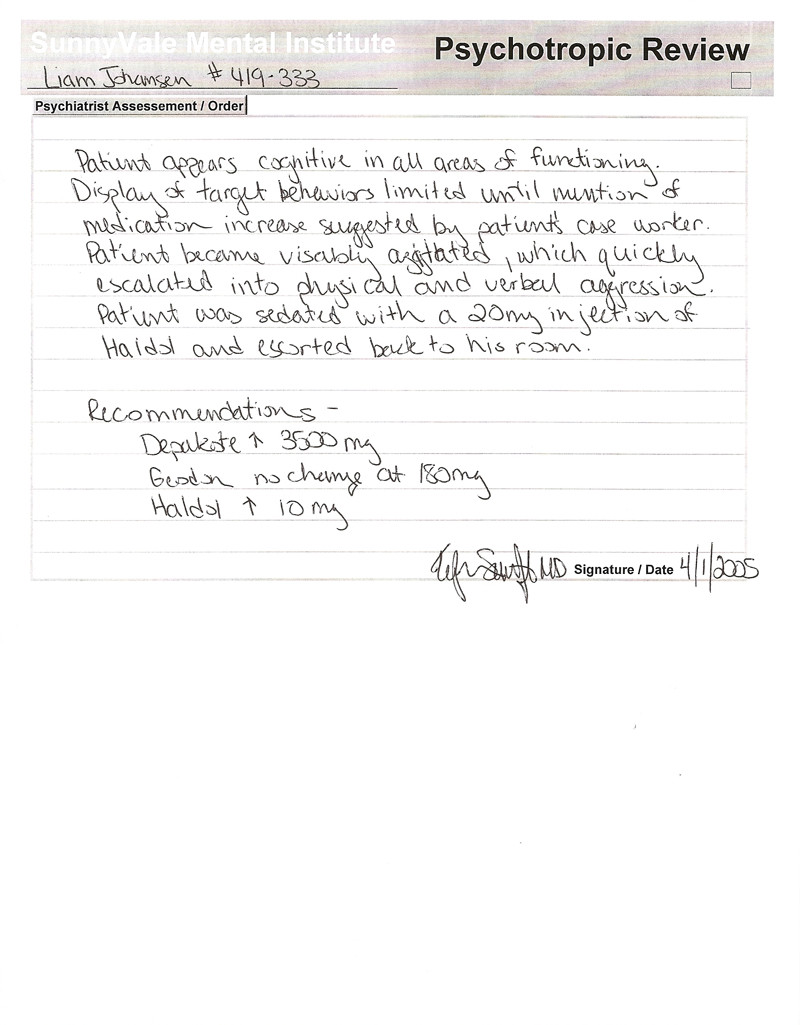 SunnyVale Mental Institute
Psychotropic Review
Liam Johansen # 419-333
Psychiatrist Assessement / Order
Patient appears cognitive in all areas of functioning.
Display of target behaviors limited until mention of
medication increase suggested by patient's case worker.
Patient became visably agitated, which quickly
escalated into physical and verbal aggression.
Patient was sedated with a 20mg injection of
Haldol and escorted back to his room.
Recommendations -
Depakote ↑ 3500 mg
Geodon no change at 180mg
Haldol ↑ 10 mg
MD Signature / Date 4/1/2005